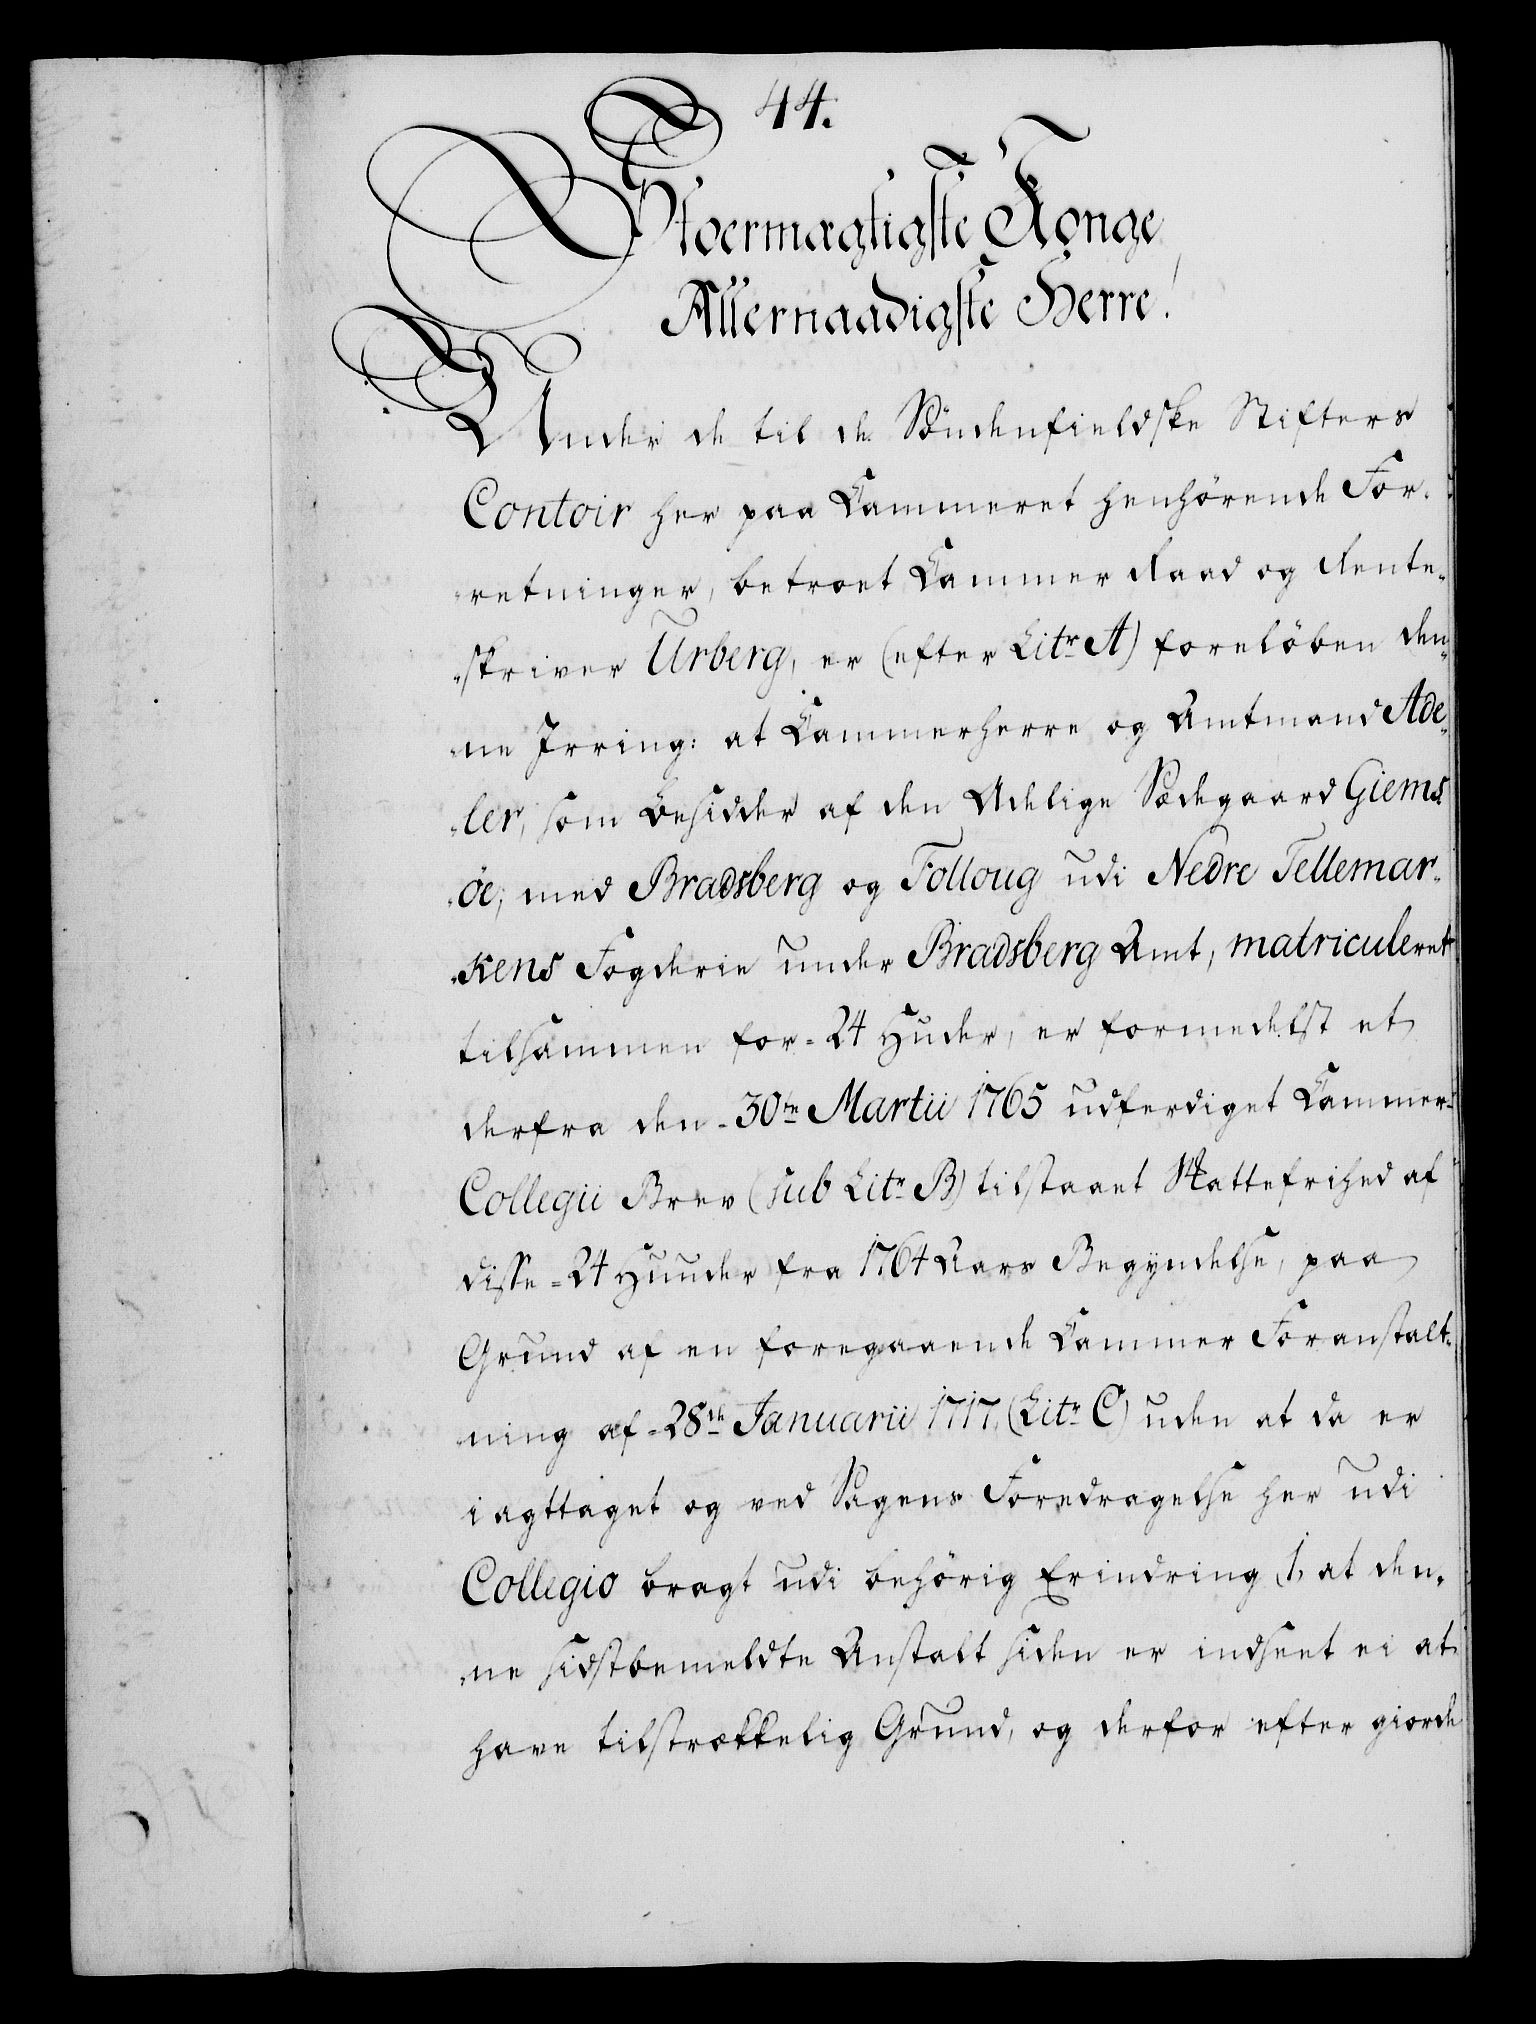 44.
Stoermægtigste Konge,
Allernaadigste Herre!
Under de til de Söndenfieldske Stifters
Contoir her paa Kammeret henhörende For-
retninger, betroet Kammer Raad og Rente-
skriver Urberg, er (efter Litr A) foreløben den-
ne Irring: at Kammerherre og Amtmand Ade-
ler, som Besidder af den Adelige Sædegaard Giems-
öe, med Bradsberg og Folloug udi Nedre Tellemar-
kens Fogderie under Bradsberg Amt, matriculeret
tilsammen for 24 Huder, er formedelst et
derfra den 30te Martii 1765 udferdiget Kammer-
Collegii Brev (sub Litr B) tilstaaet Skattefrihed af
disse 24 Huuder fra 1764 Aars Begyndelse, paa
Grund af en foregaaende Kammer Foranstalt-
ning af 28de Januarii 1717, (Litr C) uden at da er
iagttaget og ved Sagens Foredragelse her udi
Collegio bragt udi behörig Erindring, 1, at den-
ne sidstbemeldte Anstalt siden er indseet ei at
have tilstrækkelig Grund, og derfor efter giorde